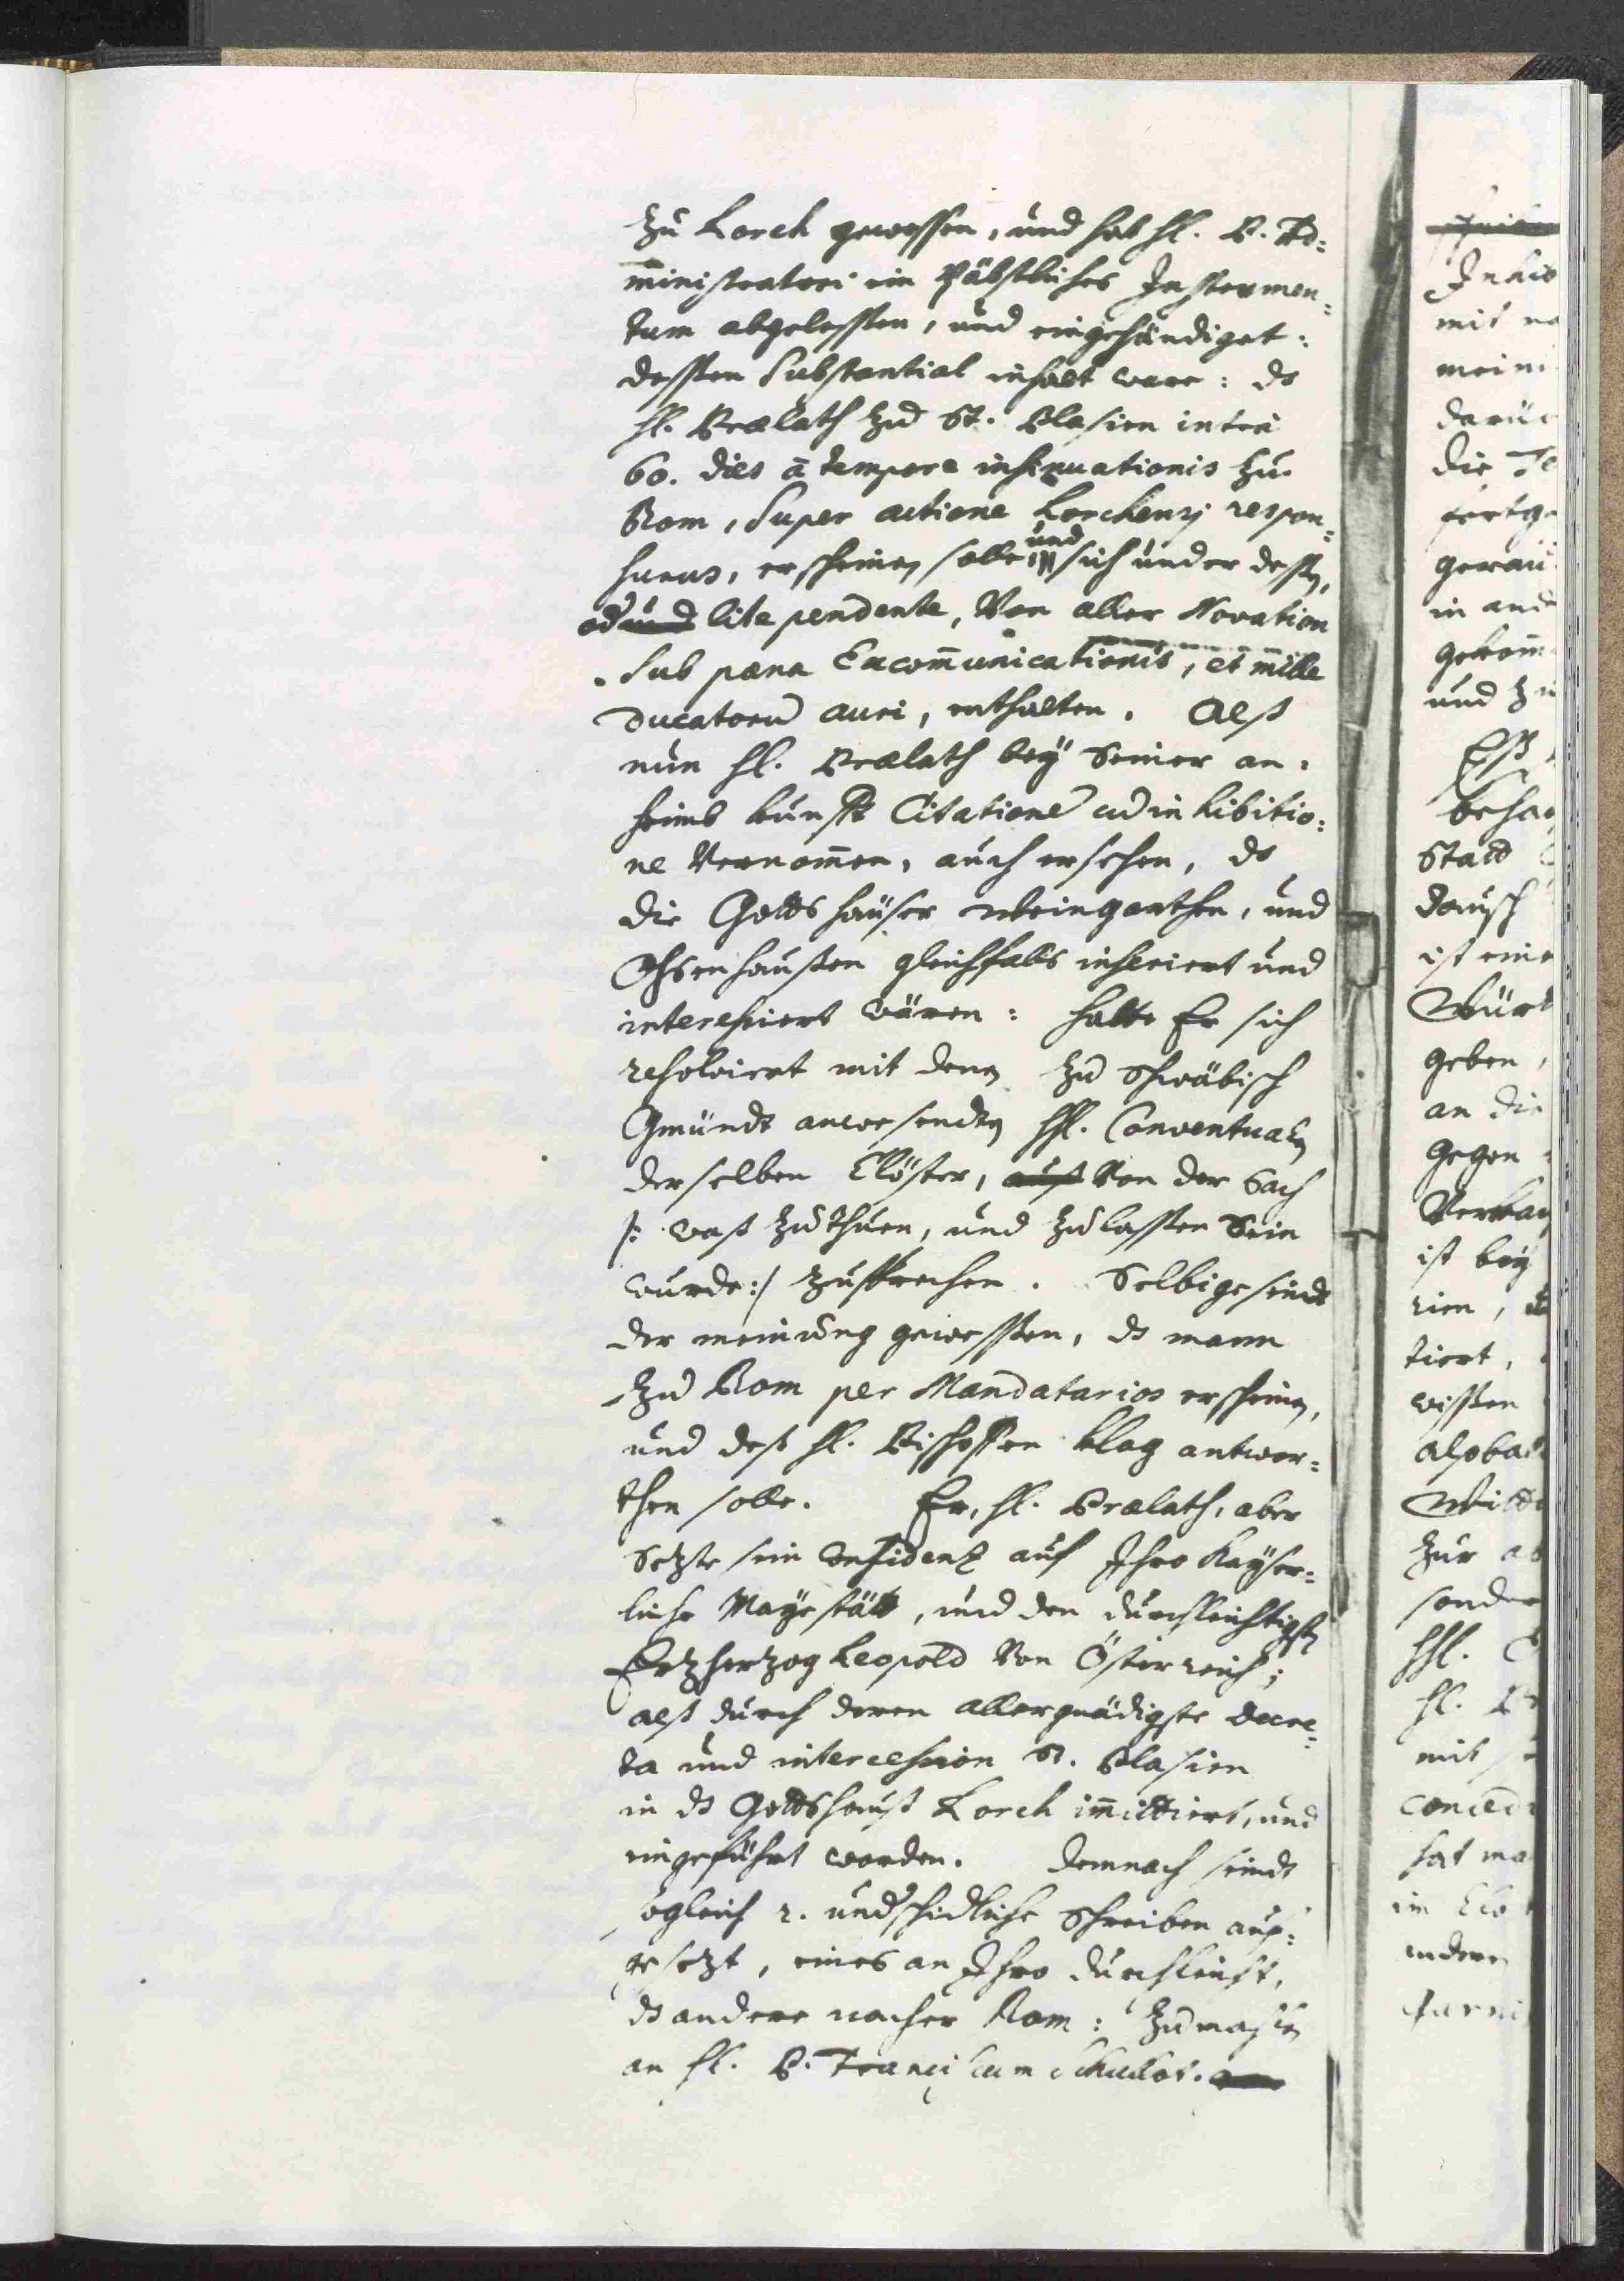 zu Lorch gewessen, und hat hl. P. Ad=
ministratori ein Päbstliches Instrumen=
tum abgelessen, und eingehändiget:
dessen Substantial inhalt ware: ds
hl. Prælath zu St. Blasien intra
60. dies à tempore insinuationis zu
Rom, Super actione Lorchensj respon=
surus, erscheinen solle, und sich under dessen,
od und lite pendente, Von aller Novation
Sub pæna Excom̄unicationis, et mille
Ducatoru auri, enthalten. Alß
nun hl. Prælath bey Seiner an=
heimb kunfft Citatione cu inhibitio=
ne Vernom̄en, auch ersehen, ds
die Gottshäuser Weingarthen, und
Ochsenhaußen gleichfalls inseriert und
interessiert wären: hatte Er sich
resolviert mit denen zu Schwäbisch
Gmündt anwesenden hhl. Conventualen
derselben Clöster, auß Von der Sach
/: waß zu thuen, und zu lassen Sein
wurde:/ zusprechen. Selbige seindt
der meinung gewessen, ds mann
zu Rom per Mandatarios erscheinen,
und deß hl. Bischoffen klag antwor=
then solle. Er, hl. Prælath, aber
Setzte sein Confidenz auf Ihro Kayser=
liche Mayestätt, und den durchleichtigsten
Ertzhertzog Leopold Von Österreich;
alß durch deren allergnädigste decre=
ta und intercession St. Blasien
in ds Gottshauß Lorch im̄ittiert, und
eingeführt worden. Demnach seindt
sogleich 2. undschidliche Schreiben auf=
gesetzt, eines an Ihro durchleicht,
ds andere nacher Rom: zumachen
an hl. P. Franciscum
Inhib
mit
meini
darüe
die
fortge
in and
gekom̄
und zu
behau
Statt
ist eine
Würt
geben,
an die
gegen
ist bey
rien,
tiert,
wissen
alsba
zur
sonder
hhl.
hl.
mit
conced
hat ma
im Clo
andere